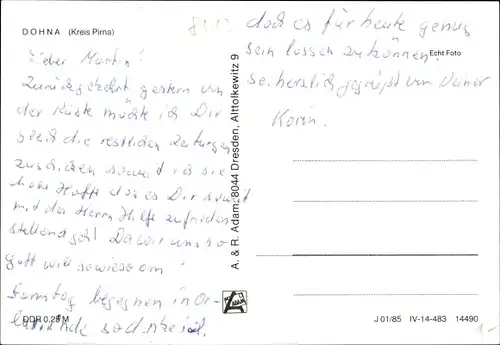 DOHNA (Kreis Pirna)
Lieber Martin!
Zurückgekehrt gestern von
der Küste möchte ich Dir
die restlichen Zeitungen
zuschicken soweit ich sie
habe Hoffe das es Dir soweit
mit des Herrn Hilfe zufrieden
stellend geht Da wir uns so
Gott will sowieso am
Samstag begegnen in
DDR 0,25 M
A. & R. Adam, 8044 Dresden, Alttolkewitz 9
ADAM
daß es für heute genug
sein lassen zu können.
Echt Foto
herzlich gegrüßt von
Karin.
J 01/85 IV-14-483 14490
1-